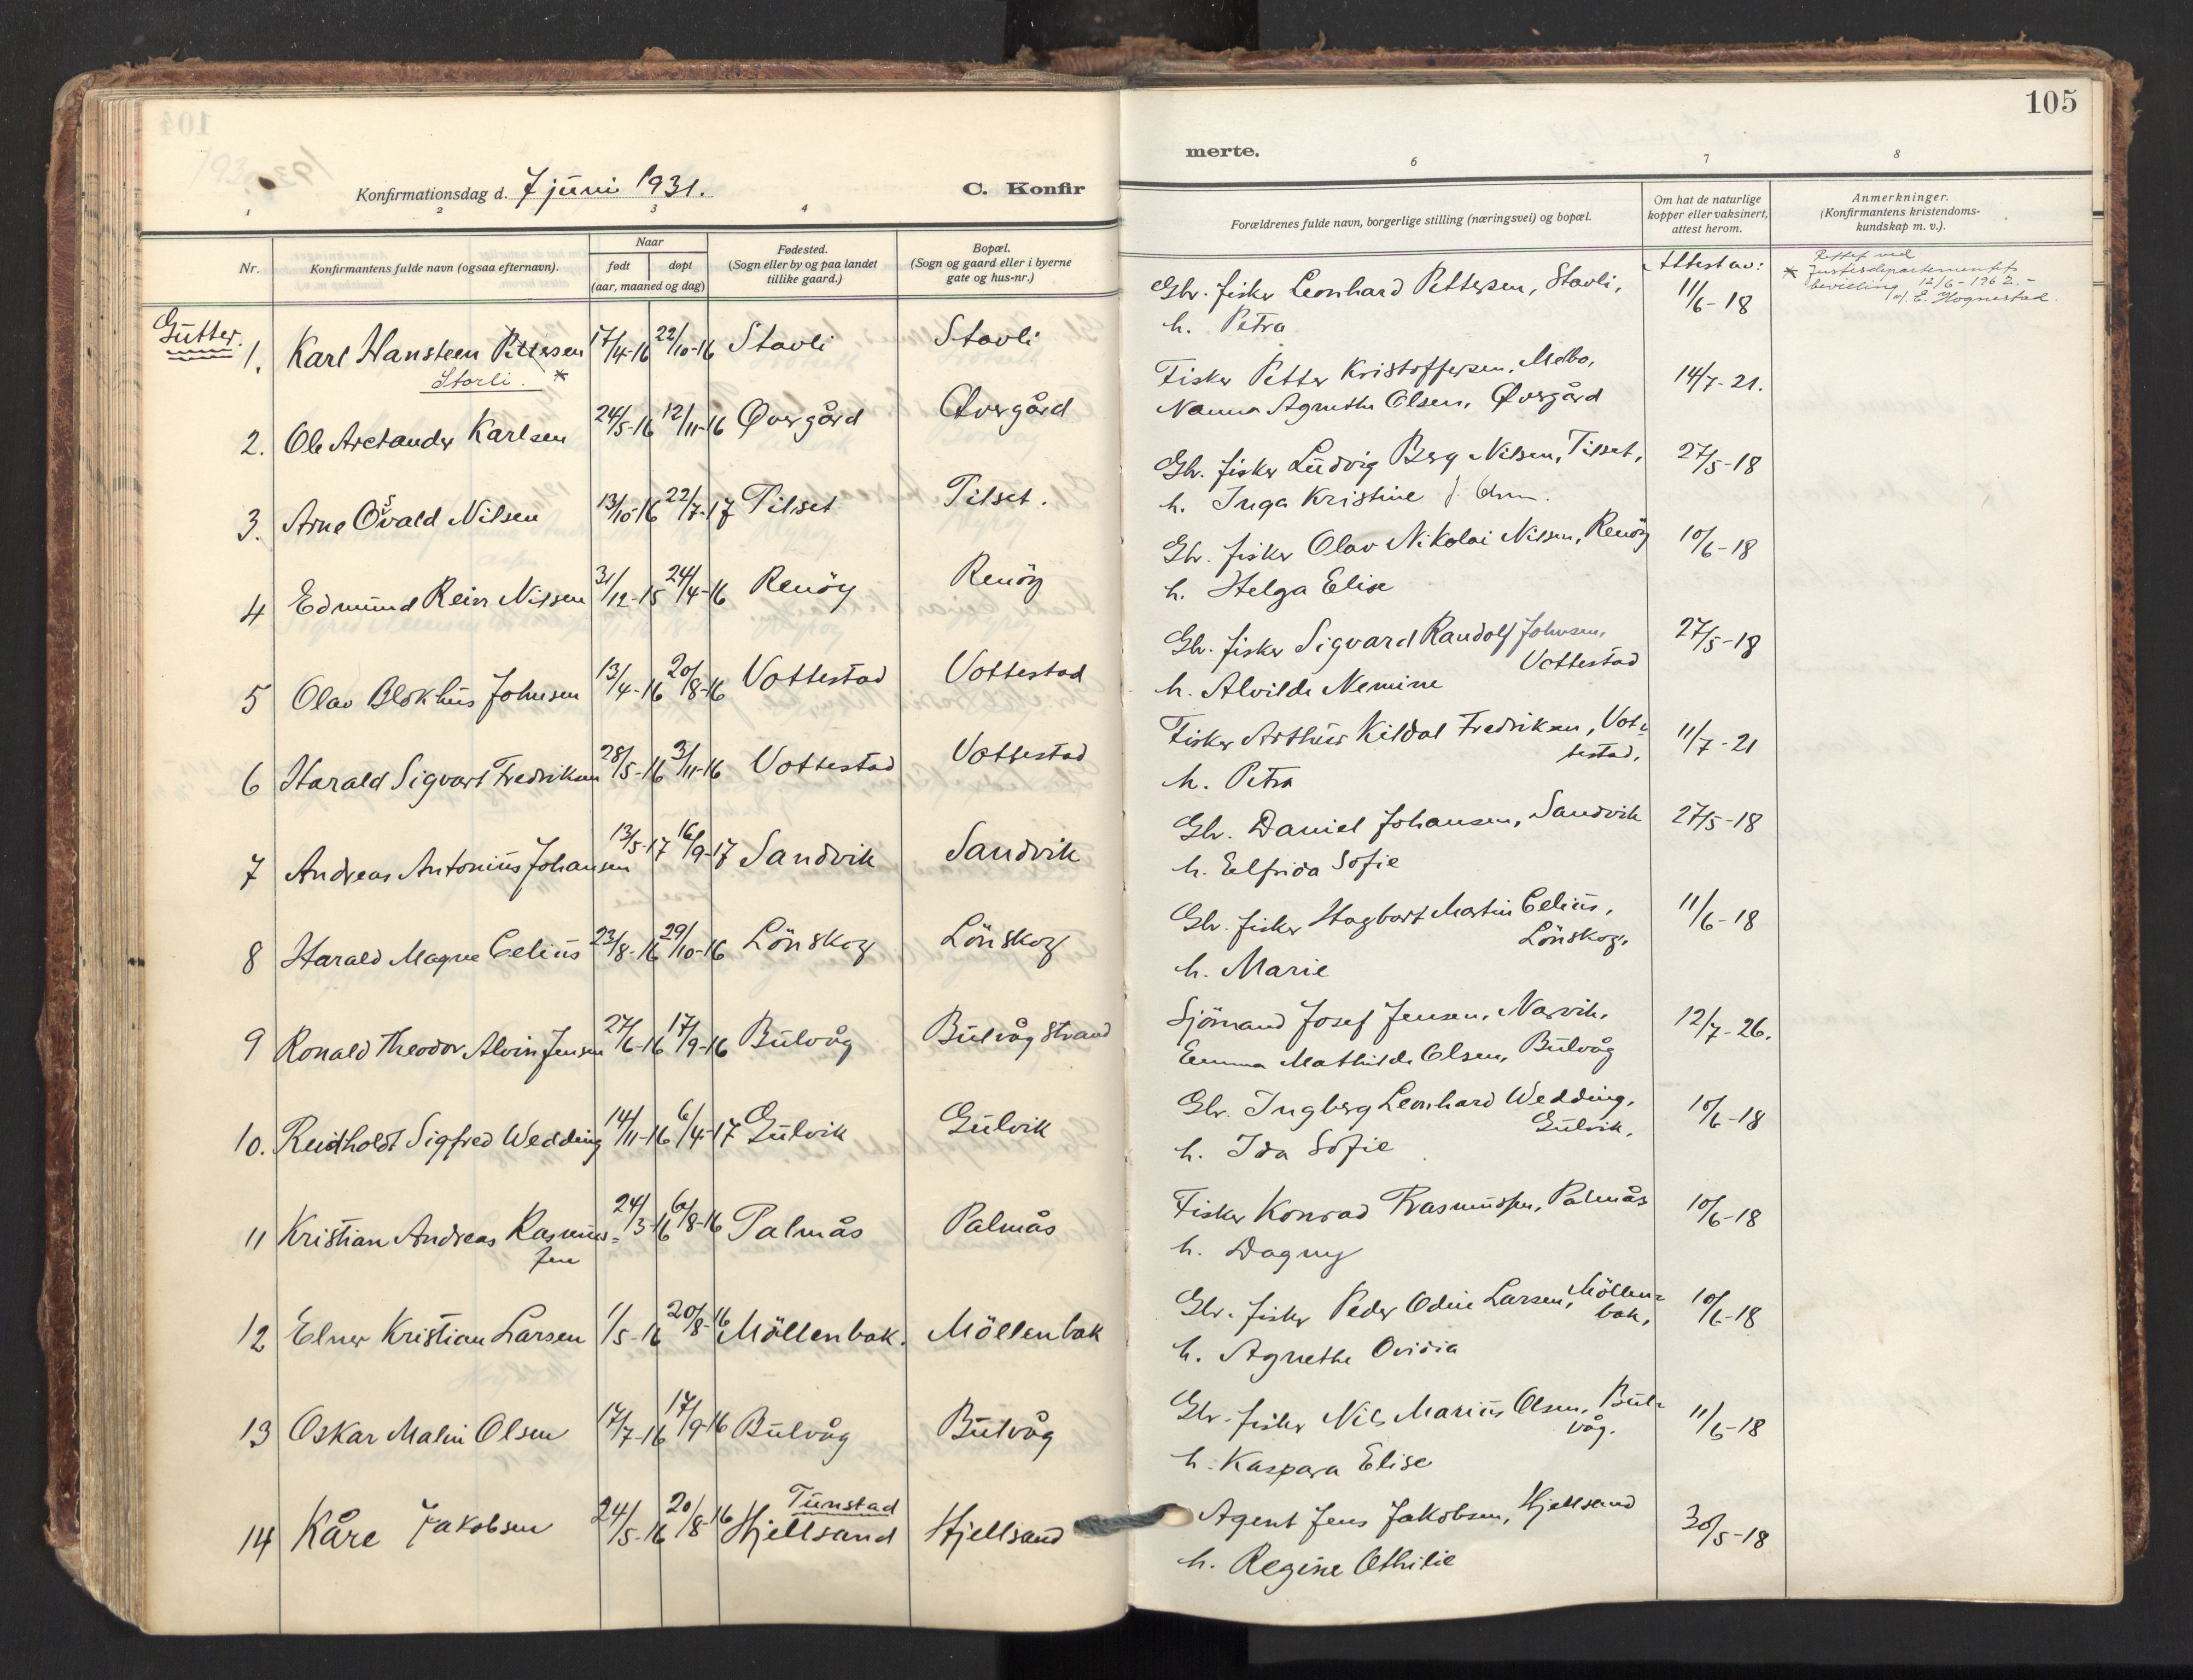 105
Konfirmationsdag d. 7 juni 1931.
C. Konfirmerte.
1 2 3 4 6 7 8
Nr.
Konfirmantens fulde navn (ogsaa efternavn).
Naar
født døpt
(aar, maaned og dag)
Fødested.
(Sogn eller by og paa landet
tillike gaard.)
Bopæl.
(Sogn og gaard eller i byerne
gate og hus-nr.)
Forældrenes fulde navn, borgerlige stilling (næringsvei) og bopæl.
Om hat de naturlige
kopper eller vaksinert,
attest herom.
Anmerkninger.
(Konfirmantens kristendoms-
kundskap m. v.).
Gutter.
1. Karl Hansteen Pettersen 17/4-16 22/10-16 Stavli Stavli
Storli. *
Gbr. fisker Leonhard Pettersen, Stavli, Attest av: 11/6-18
h. Petra
* Rettet ved
Justisdepartementets
bevilling 12/6-1962.-
E. Hognestad.
2. Ole Arctander Karlsen 24/5-16 12/11-16 Øvergård Øvergård
Fisker Petter Kristoffersen, Melbo, 14/7-21.
Nanna Agnethe Olsen, Øvergård
3. Arne Osvald Nilsen 13/10-16 22/7-17 Tilset Tilset.
Gbr. fisker Ludvig Berg Nilsen, Tilset, 27/5-18
h. Inga Kristine
4 Edmund Rein Nilsen 31/12-15 24/4-16 Renöy Renöy
Gbr. fisker Olav Nikolai Nilsen, Renöy 10/6-18
h. Helga Elise
5 Olav Blokhus Johnsen 13/4-16 20/8-16 Vottestad Vottestad
Gbr. fisker Sigvard Randolf Johnsen, 27/5-18
Vottestad
h. Alvilde Nemine
6 Harald Sigvart Fredriksen 28/5-16 3/11-16 Vottestad Vottestad
Fisker Arthur Kildal Fredriksen, Vot- 11/7-21
testad,
h. Petra
7 Andreas Antonius Johansen 13/5-17 16/9-17 Sandvik Sandvik
Gbr. Daniel Johansen, Sandvik 27/5-18
h. Elfrida Sofie
8 Harald Magne Celius 23/8-16 29/10-16 Lönskog Lönskog
Gbr. fisker Hagbart Martin Celius, 11/6-18
Lönskog,
h. Marie
9 Ronald Theodor Alvin Jensen 27/6-16 17/9-16 Bulvåg Bulvåg Strand
Sjömand Josef Jensen, Narvik, 12/7-26.
Emma Mathilde Olsen, Bulvåg
10. Reidholdt Sigfred Wedding 14/11-16 6/4-17 Gulvik Gulvik
Gbr. Ingberg Leonhard Wedding, 10/6-18
Gulvik,
h. Ida Sofie
11 Kristian Andreas Rasmus- 24/3-16 6/8-16 Palmås Palmås
sen
Fisker Konrad Rasmussen, Palmås 10/6-18
h. Dagny
12 Elner Kristian Larsen 1/5-16 20/8-16 Möllenbak. Möllenbak
Gbr. fisker Peder Odin Larsen, Möllen- 10/6-18
bak,
h. Agnethe Ovidia
13 Oskar Malin Olsen 17/7-16 17/9-16 Bulvåg Bulvåg
Gbr. fisker Nils Marius Olsen, Bul- 11/6-18
våg.
h. Kaspara Elise
Tunstad
14 Kåre Jakobsen 24/5-16 20/8-16 Hjellsand Hjellsand
Agent Jens Jakobsen, Hjellsand 30/5-18
h. Regine Othilie